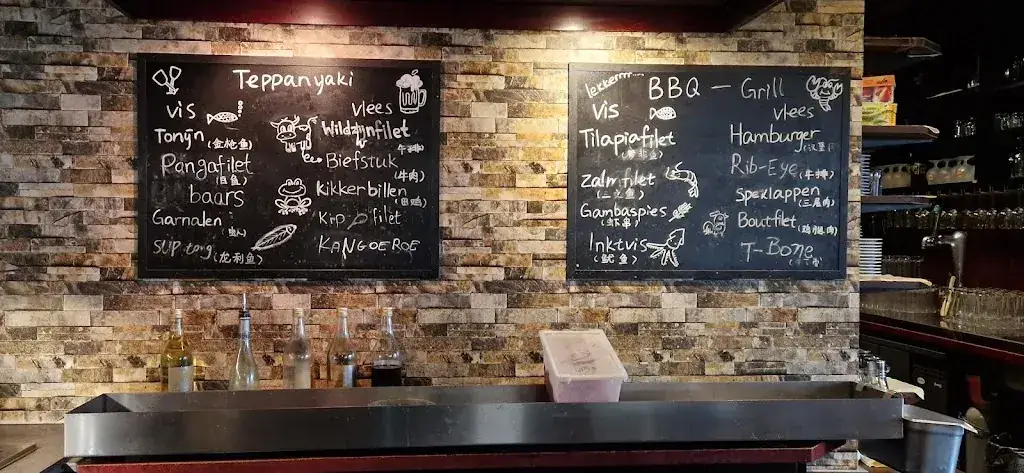 Teppanyaki
vis
Tonijn (金枪鱼)
Pangafilet
baars
Garnalen
SUP tong (龙利鱼)
vlees
Wildzwijnfilet
Biefstuk
(牛肉)
kikkerbillen
(田鸡)
Kip filet
KANGOEROE
lekkerrrr
BBQ – Grill
Vis
Tilapiafilet
(罗非鱼)
Zalmfilet
(三文鱼)
Gambaspies
(虾串)
Inktvis
(鱿鱼)
vlees
Hamburger
Rib-Eye (牛排)
speklappen
(三层肉)
Boutfilet
(鸡腿肉)
T-Bone